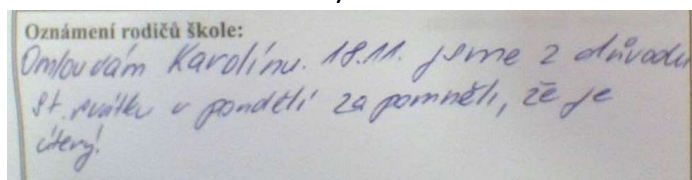 Oznámení rodičů škole:
Omlouvám Karolínu. 18.11. jsme z důvodu
st. svátku v pondělí zapomněli, že je
úterý!